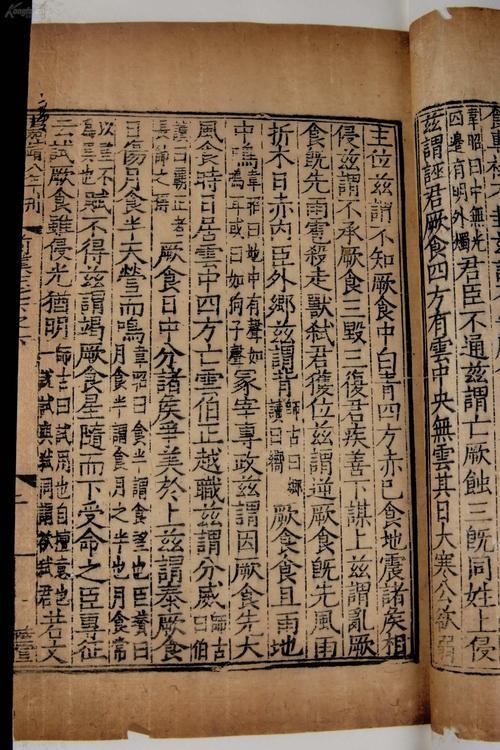 韋昭曰中黑四邊有明外燭君臣不通茲謂亡厥蝕三旣同姓上侵
茲謂誣君厥食四方有雲中央無雲其日大寒公欲弱
主位茲謂不知厥食中白青四方赤已食地震諸矦相
侵茲謂不承厥食三毀三復君疾善下謀上茲謂亂厥
食旣先雨雹殺走獸弑君獲位茲謂逆厥食旣先風雨
折木日赤內臣外鄉茲謂背師古曰鄉讀曰嚮厥食食且雨地
中鳴韋昭曰地中有聲如鳴爲耳或曰如狗子聲冢宰專政茲謂因厥食先大
風食時日居雲中四方亡雲伯正越職茲謂分威師古曰伯
讀曰霸正者長帥之稱厥食日中分諸矦爭美於上茲謂泰厥食
日傷月食半天營而鳴韋昭曰食半謂食望也臣瓚曰月食半謂食月之半也月食常
以望不爲異也賦不得茲謂竭厥食星隨而下受命之臣專征
云試厥食雖侵光猶明師古曰試用也自擅意也一說試與弑同謂欲弑君若文